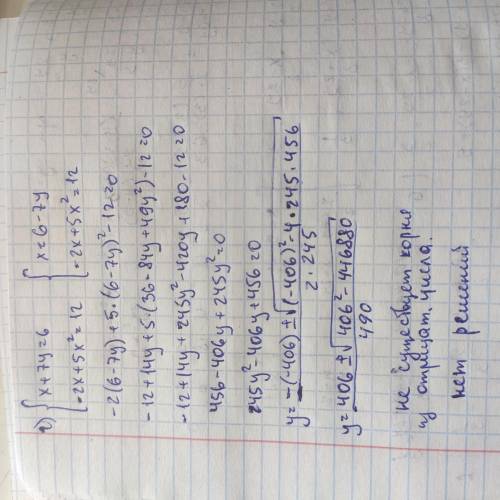 г) { x+7y=6    { x=6-7y
{ -2x+5x²=12    { -2x+5x²=12
-2(6-7y)+5·(6-7y)²-12=0
-12+14y+5·(36-84y+49y²)-12=0
-12+14y+245y²-420y+180-12=0
456-406y+245y²=0
245y²-406y+456=0
y= -(-406)±√(-406)²-4·245·456 / 2·245
y= 406±√406²-446880 / 490
не существует корня
из отрицат. числа.
нет решений